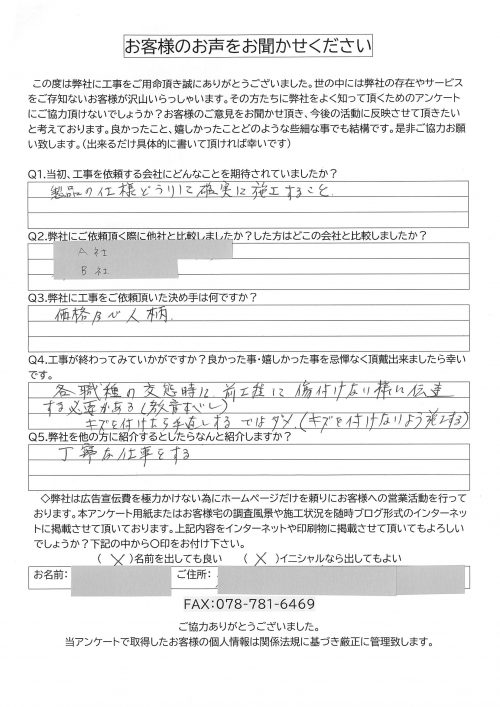 お客様のお声をお聞かせください
この度は弊社に工事をご用命頂き誠にありがとうございました。世の中には弊社の存在やサービス
をご存知ないお客様が沢山いらっしゃいます。その方たちに弊社をよく知って頂くためのアンケート
にご協力頂けないでしょうか？お客様のご意見をお聞かせ頂き、今後の活動に反映させて頂きたい
と考えております。良かったこと、嬉しかったことどのような些細な事でも結構です。是非ご協力お願
い致します。（出来るだけ具体的に書いて頂ければ幸いです）
Q1.当初、工事を依頼する会社にどんなことを期待されていましたか？
製品の仕様どうりに確実に施工すること
Q2.弊社にご依頼頂く際に他社と比較しましたか？した方はどこの会社と比較しましたか？
A社
B社
Q3.弊社に工事をご依頼頂いた決め手は何ですか？
価格及び人柄.
Q4.工事が終わってみていかがですか？良かった事・嬉しかった事を忌憚なく頂戴出来ましたら幸い
です。
各職種の交態時に前工程に傷付けない様に伝達
する必要がある
キズを付けたら手直しするではダメ.(キズを付けないよう施工する)
Q5.弊社を他の方に紹介するとしたらなんと紹介しますか？
丁寧な仕事をする
◇弊社は広告宣伝費を極力かけない為にホームページだけを頼りにお客様への営業活動を行って
おります。本アンケート用紙またはお客様宅の調査風景や施工状況を随時ブログ形式のインターネッ
トに掲載させて頂いております。上記内容をインターネットや印刷物に掲載させて頂いてもよろしい
でしょうか？下記の中から〇印をお付け下さい。
（ × ）名前を出しても良い　（ × ）イニシャルなら出してもよい
お名前： ご住所：
FAX:078-781-6469
ご協力ありがとうございました。
当アンケートで取得したお客様の個人情報は関係法規に基づき厳正に管理致します。